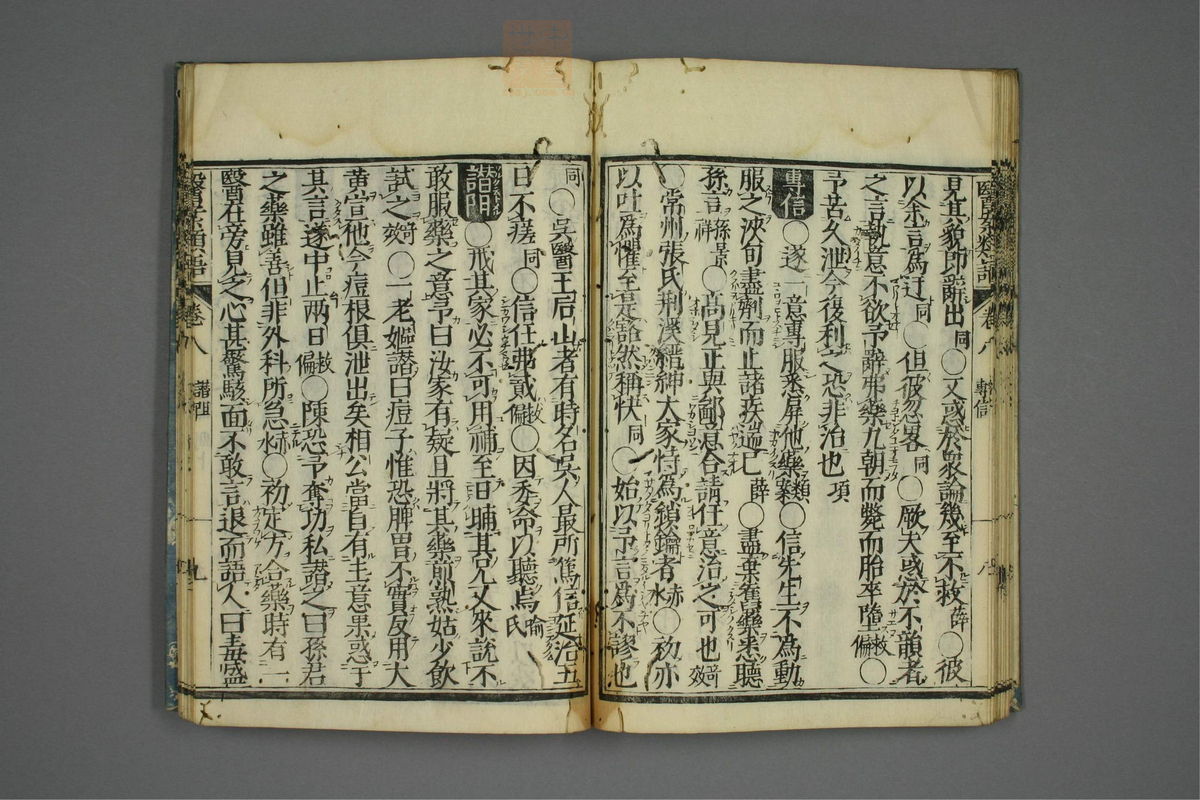 醫案類語 卷八 專信 八
見其貌即辭出同〇又惑於眾論幾至不救薛〇彼
以余言為迂同〇但彼忽畧同〇厥夫惑於不韻者
之言執意不欲予辭弗藥九朝而斃而胎卒墮救偏〇
予苦久泄今復利之恐非治也項
專信〇遂一意專服悉屏他藥類案〇信先生不為動
服之浹旬盡劑而止諸疾遄已薛〇盡棄舊藥悉聽
孫言孫景祥〇高見正與鄙意合請任意治之可也奇效
〇常州張氏荊溪縉紳大家恃為鎖鑰者赤水〇初亦
以吐為懼至是豁然稱快同〇始以予言為不謬也
同〇吳醫王居山者有時名吳人最所篤信延治五
日不瘥同〇信任弗貳救偏〇因委命以聽焉喻氏
譖間〇戒其家必不可用補至日晡其兄又來說不
敢服藥之意予曰汝家有疑且將其藥煎熟姑少飲
試之奇效〇一老嫗譖曰痘子惟恐脾胃不實反用大
黃宣他今痘根俱泄出矣相公當自有主意果惑于
其言遂中止兩日救偏〇陳恐予奪功私譖之曰孫君
之藥雖善但非外科所急赤水〇初定方合藥時有一
醫在旁見之心甚驚駭面不敢言退而語人曰毒盛
醫案類語 卷八 譖間 九